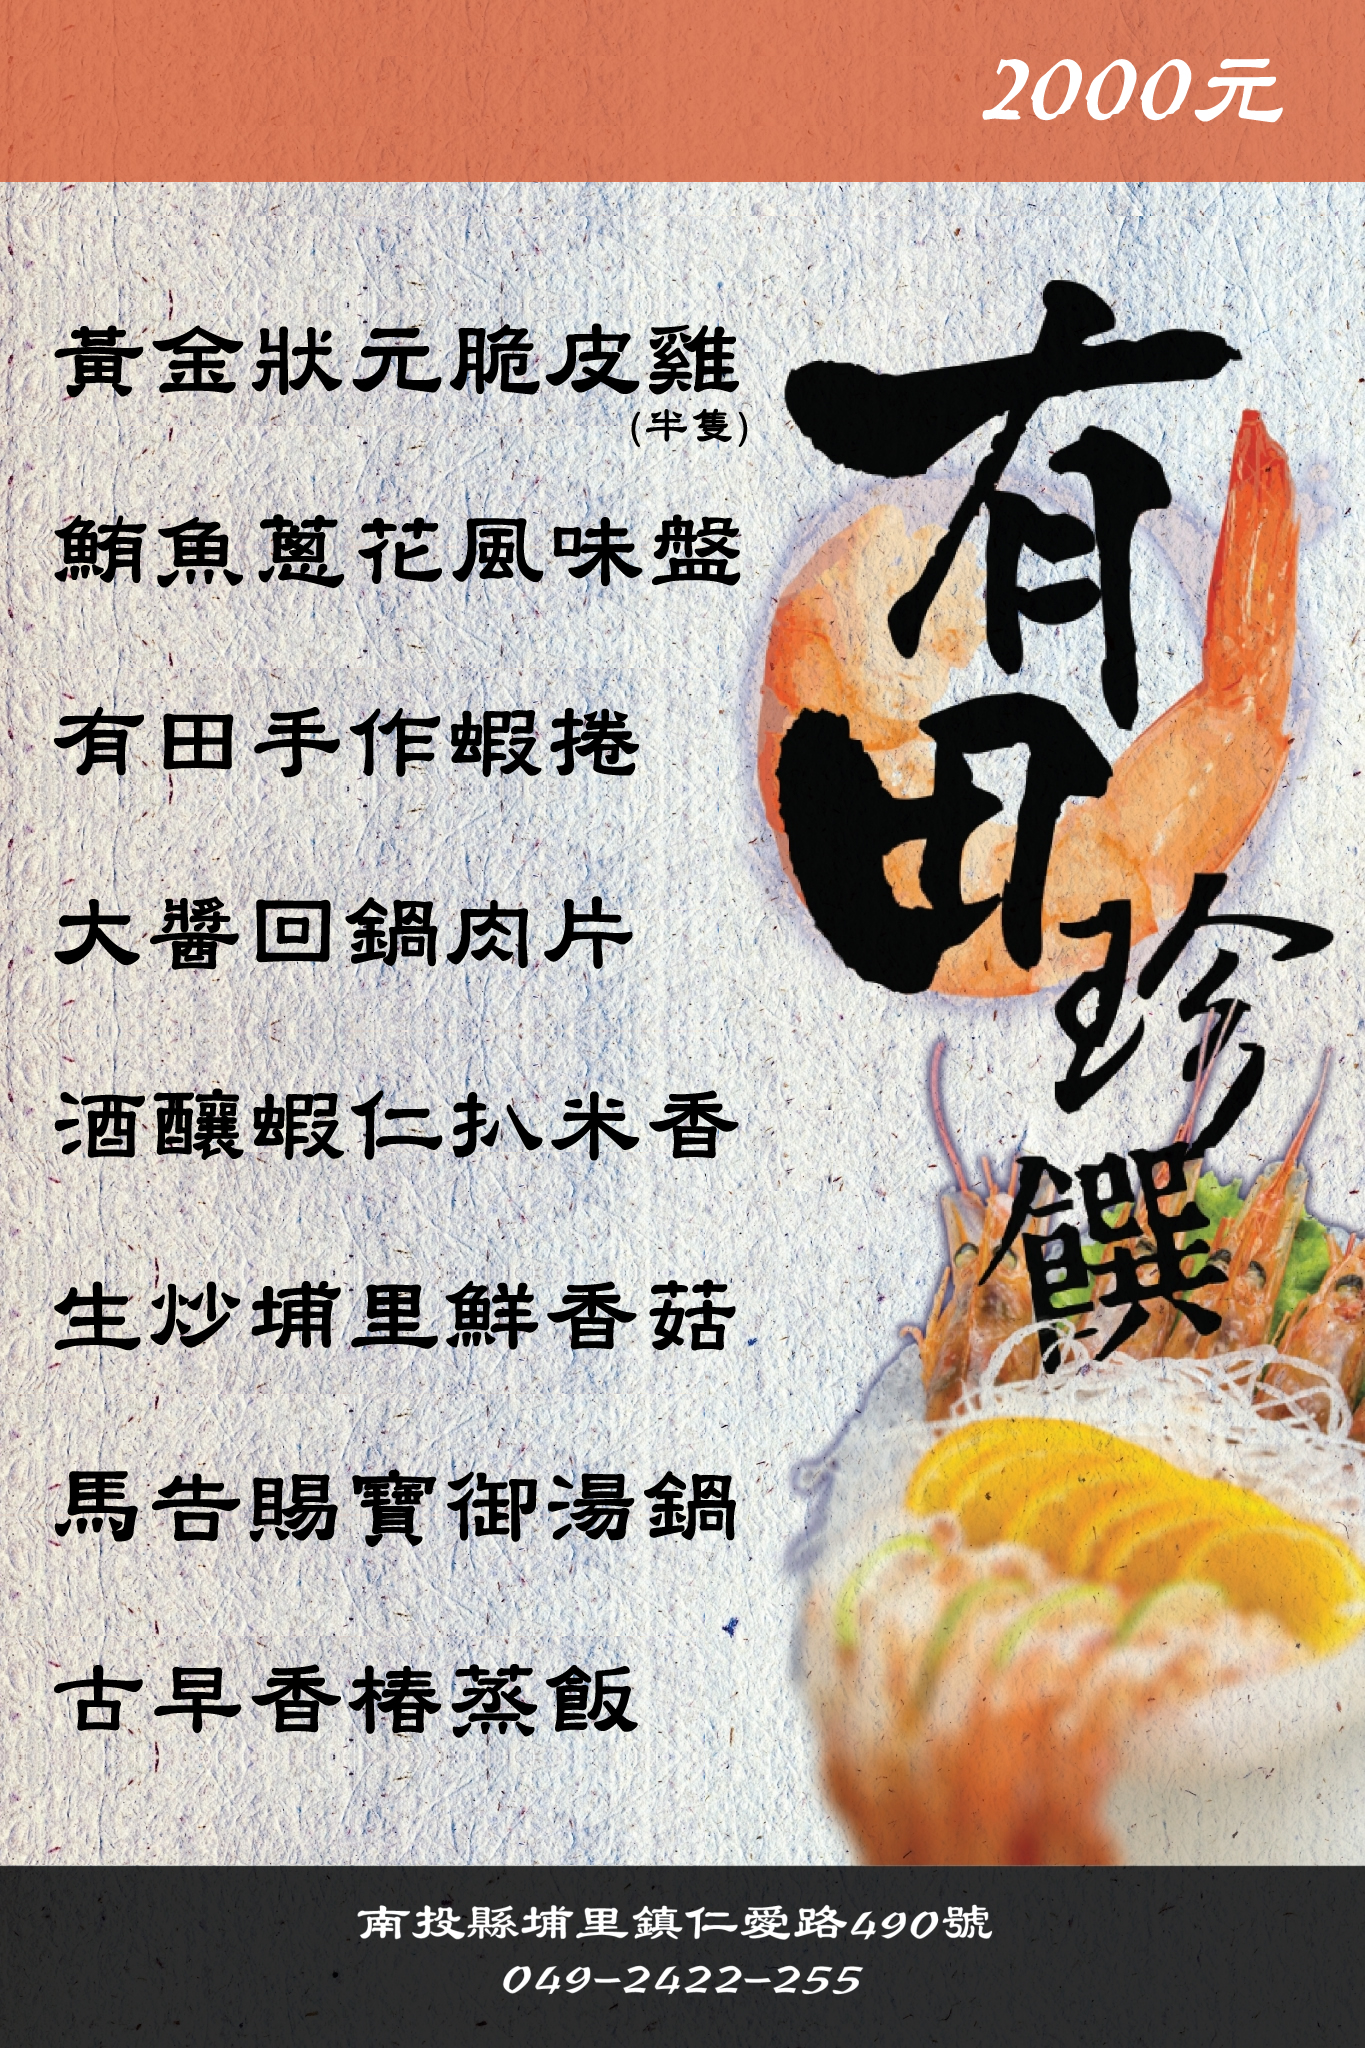 2000元
黃金狀元脆皮雞
(半隻)
鮪魚蔥花風味盤
有田手作蝦捲
大醬回鍋肉片
酒釀蝦仁扒米香
生炒埔里鮮香菇
馬告賜寶御湯鍋
古早香椿蒸飯
有田
珍饌
南投縣埔里鎮仁愛路490號
049-2422-255